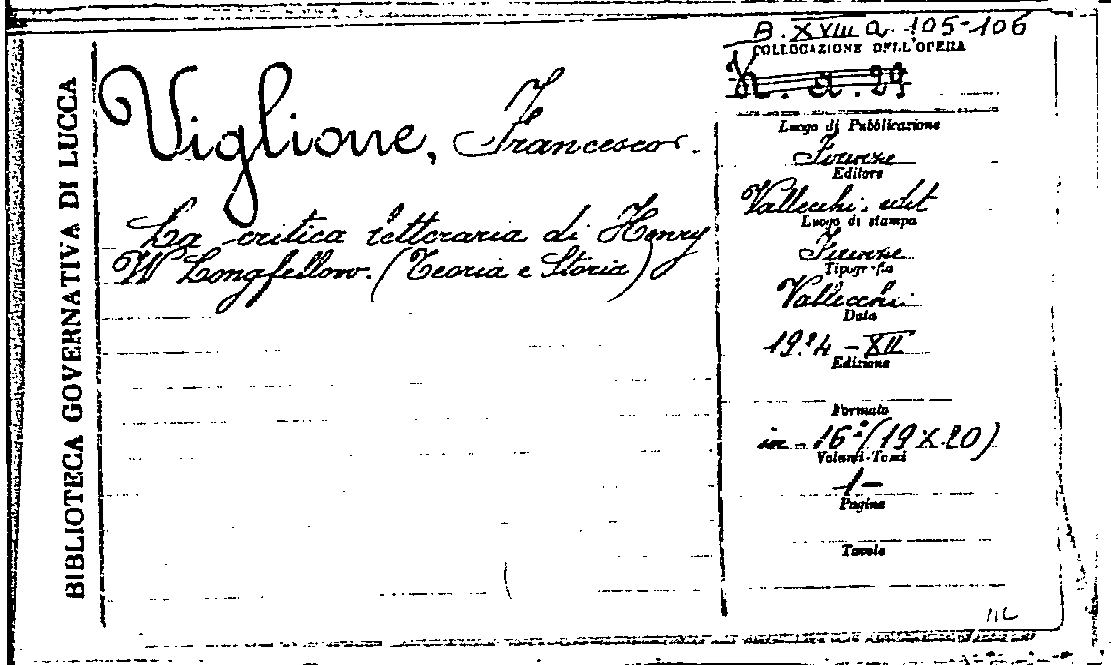 BIBLIOTECA GOVERNATIVA DI LUCCA
Viglione, Francesco.
La critica letteraria di Henry
W Longfellow. (Teoria e Storia)
B. XVIII a. 105-106
COLLOCAZIONE DELL'OPERA
a. 29
Luogo di Pubblicazione
Firenze
Editore
Vallecchi. edit
Luogo di stampa
Firenze
Tipografia
Vallecchi.
Data
XII
Edizione
Formato
in-16º (19 X 20)
Volumi-Tomi
1-
Pagine
Tavole